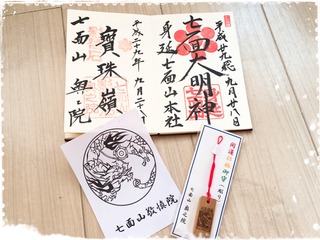 平成廿九年 九月廿八日
七面大明神
身延 七面山本社
平成二十九年 九月二十八日
寶珠嶺
七面山 奥之院
七面山敬慎院
開運
御守
七面山 奥之院